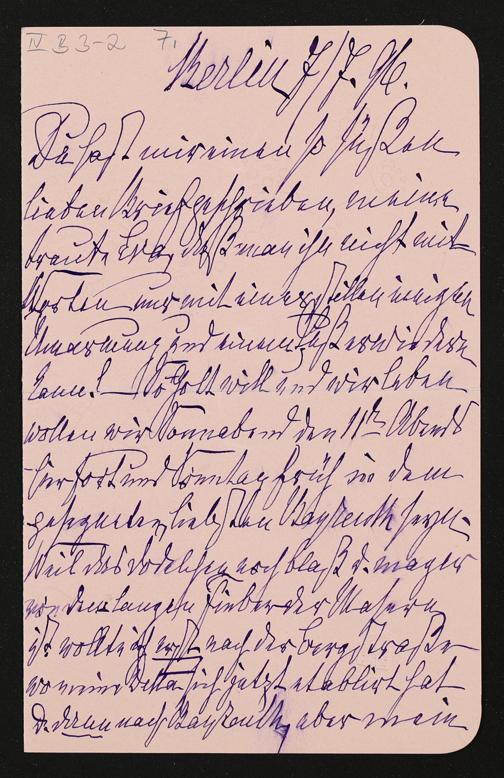 IV B 3-2 7.
Berlin 7/7. 96.
Du hast mir einen so süßen
lieben Brief geschrieben, meine
traute Eva, daß man ihn nicht mit
Worten nur mit einer stillen innigen
Umarmung und einem Kuß erwidern
kann! — So Gott will und wir leben
wollen wir Sonnabend den 11th Abends
hier fort und Sonntag früh in dem
gesegneten, liebsten Bayreuth seyn.
Weil das noch blaß d. mager
von dem langen Fieber der Masern
ist wollte ich erst nach der Bergstraße
wo meine sich jetzt etablirt hat
d. dann nach Bayreuth, aber mein